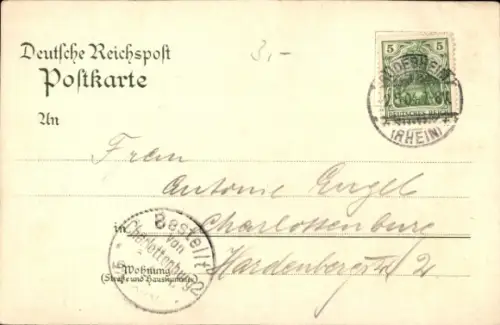 Deutsche Reichspost
Postkarte
3,-
5 5
DEUTSCHES REICH
RÜDESHEIM
(RHEIN)
An
Frau
Antonie Engel
in Charlottenburg
Wohnung Hardenbergstr 2
(Straße und Hausnummer)
Bestellt
von
Charlottenburg 2